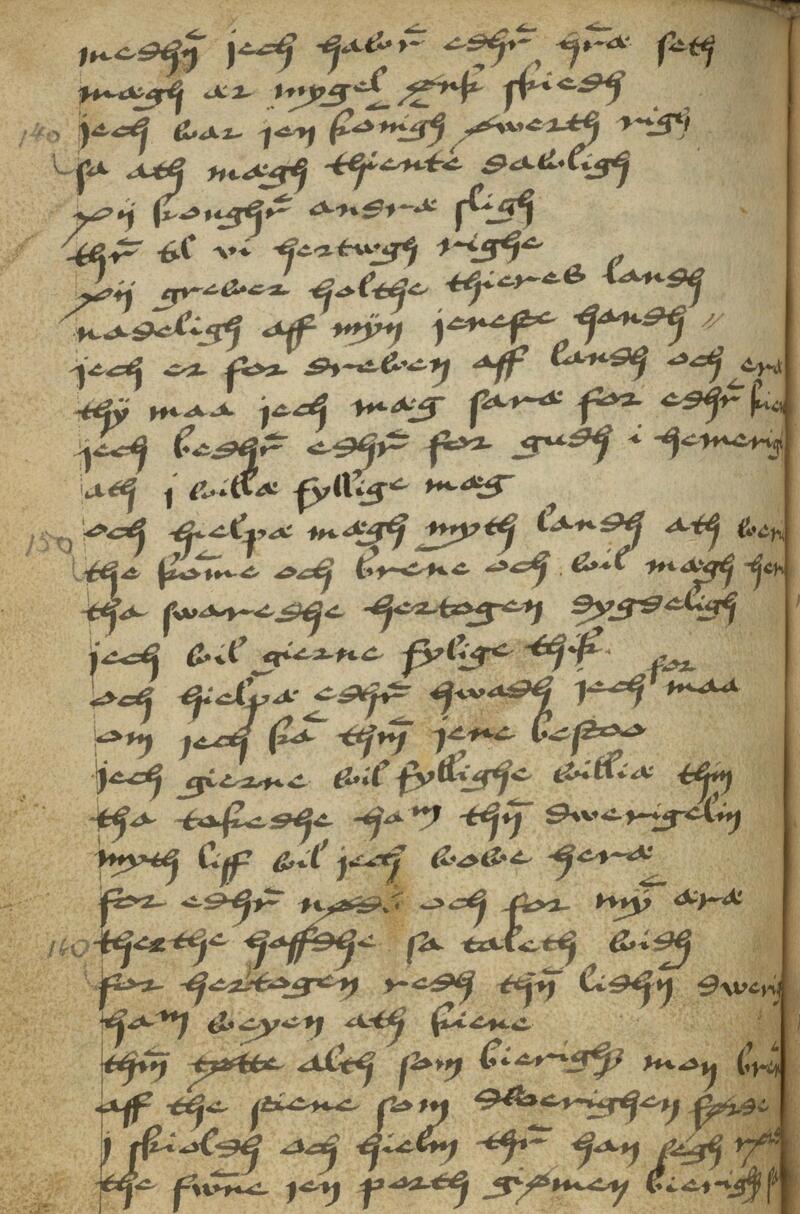 medhn̄ jech hawr̄ edhr̄ hr̄æ seth
mægh ær mygel ønk skiedh
140 jech war jen kōnigh øwerth righ
sa ath mægh thiente dawligh
xij konghr̄ andræ sligh
thr̄ til vi hertwgh righe
xij grewer holthe thieres landh
nadeligh aff mÿn jeneste handh //
jech er for drewen aff landh och
thÿ maa jech mæg saræ for edhr̄
jech bedhr̄ edhr̄ for gudh i
ath j willæ fyllige mæg
150 och hielpæ mægh myth landh ath
the kōme och brene och wil mægh
tha swaredhe hertogen dygdeligh
jech wil gierne fylige thik
och hielpæ edhr̄ hwadh jech for maa
om jech kā thm̄ jene bestoo
jech gierne wil fyllighe williæ thin
tha takedhe ham thn̄ dwerigelin
myth liff wil jech wowe heræ
for edhr̄ och for mȳ æræ
160 ther the haffdhe sa taleth widh
for hertogen redh thn̄ lidhn̄
ham weyen ath kiene
thm̄ tøtte alth som bierigh mon
aff the stene som dwerighen førde
j skioldh och hielm thr̄ han segh
the fwn̄e jen porth giømen bierigh